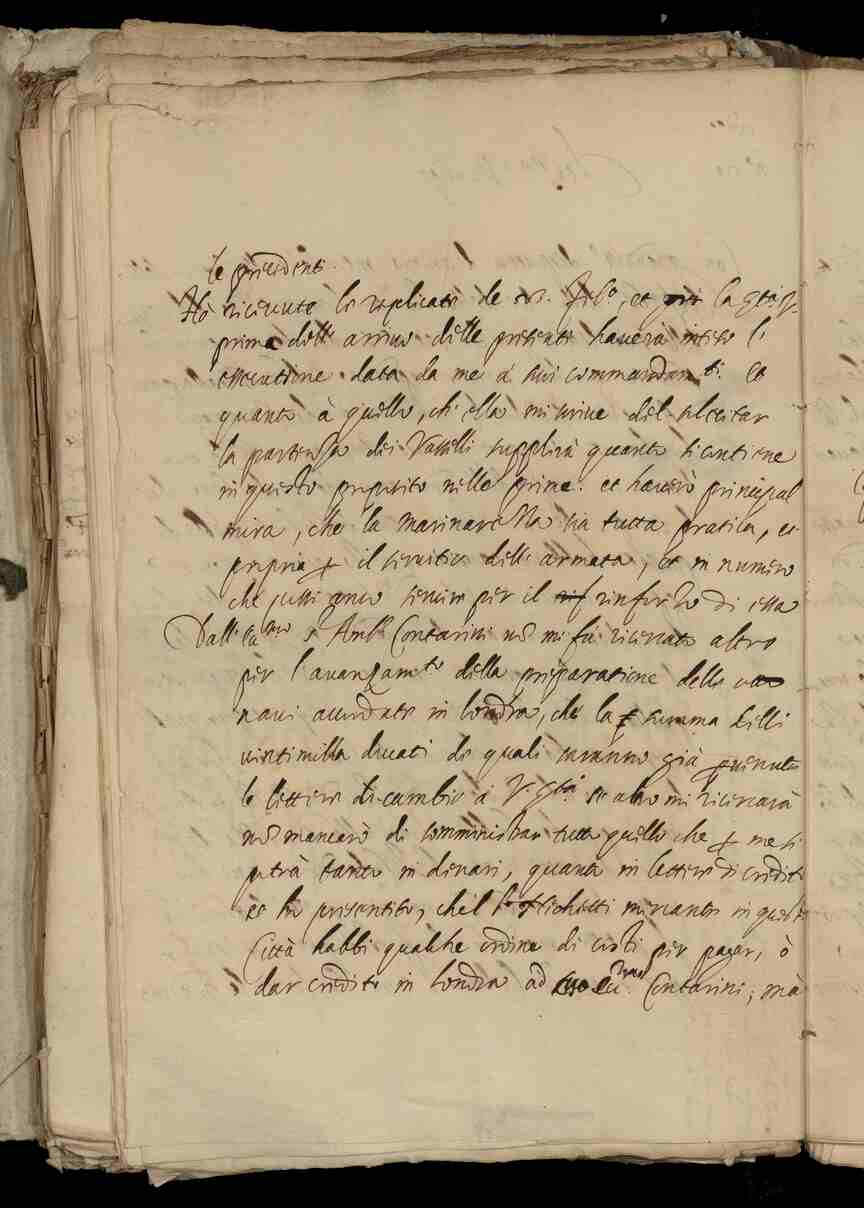 le precedenti.
Hò ricevuto le replicate de 28. feb.º, et la
prima dell' arrivo delle presenti haverà inteso l'
essecutione data da me a' suoi commandam.ti. Et
quanto à quello, ch' ella mi scrive del
la partenza dei Vasselli supplirà quanto si contiene
in questo proposito nelle prime. et haverò principal
mira, che la marinarezza sia tutta pratica, et
propria p il servitio dell' armata, et in numero
che possi anco servire per il rinforzo di essa
Dall' s.r Amb.r Contarini nõ mi fu ricercato altro
per l'avanzam.to della preparatione delle
navi accordate in Londra, che la summa delli
vintimilla ducati de quali saranno già pvenute
le lettere di cambio a V. se altro mi ricercarà
nõ mancarò di somministrar tutto quello che p me si
potrà tanto in denari, quanto in lettere di credito
et hò presentito, che'l mercante in questa
Città habbi qualche ordine di costì per pagar, ò
dar credito in Londra ad Contarini; mà